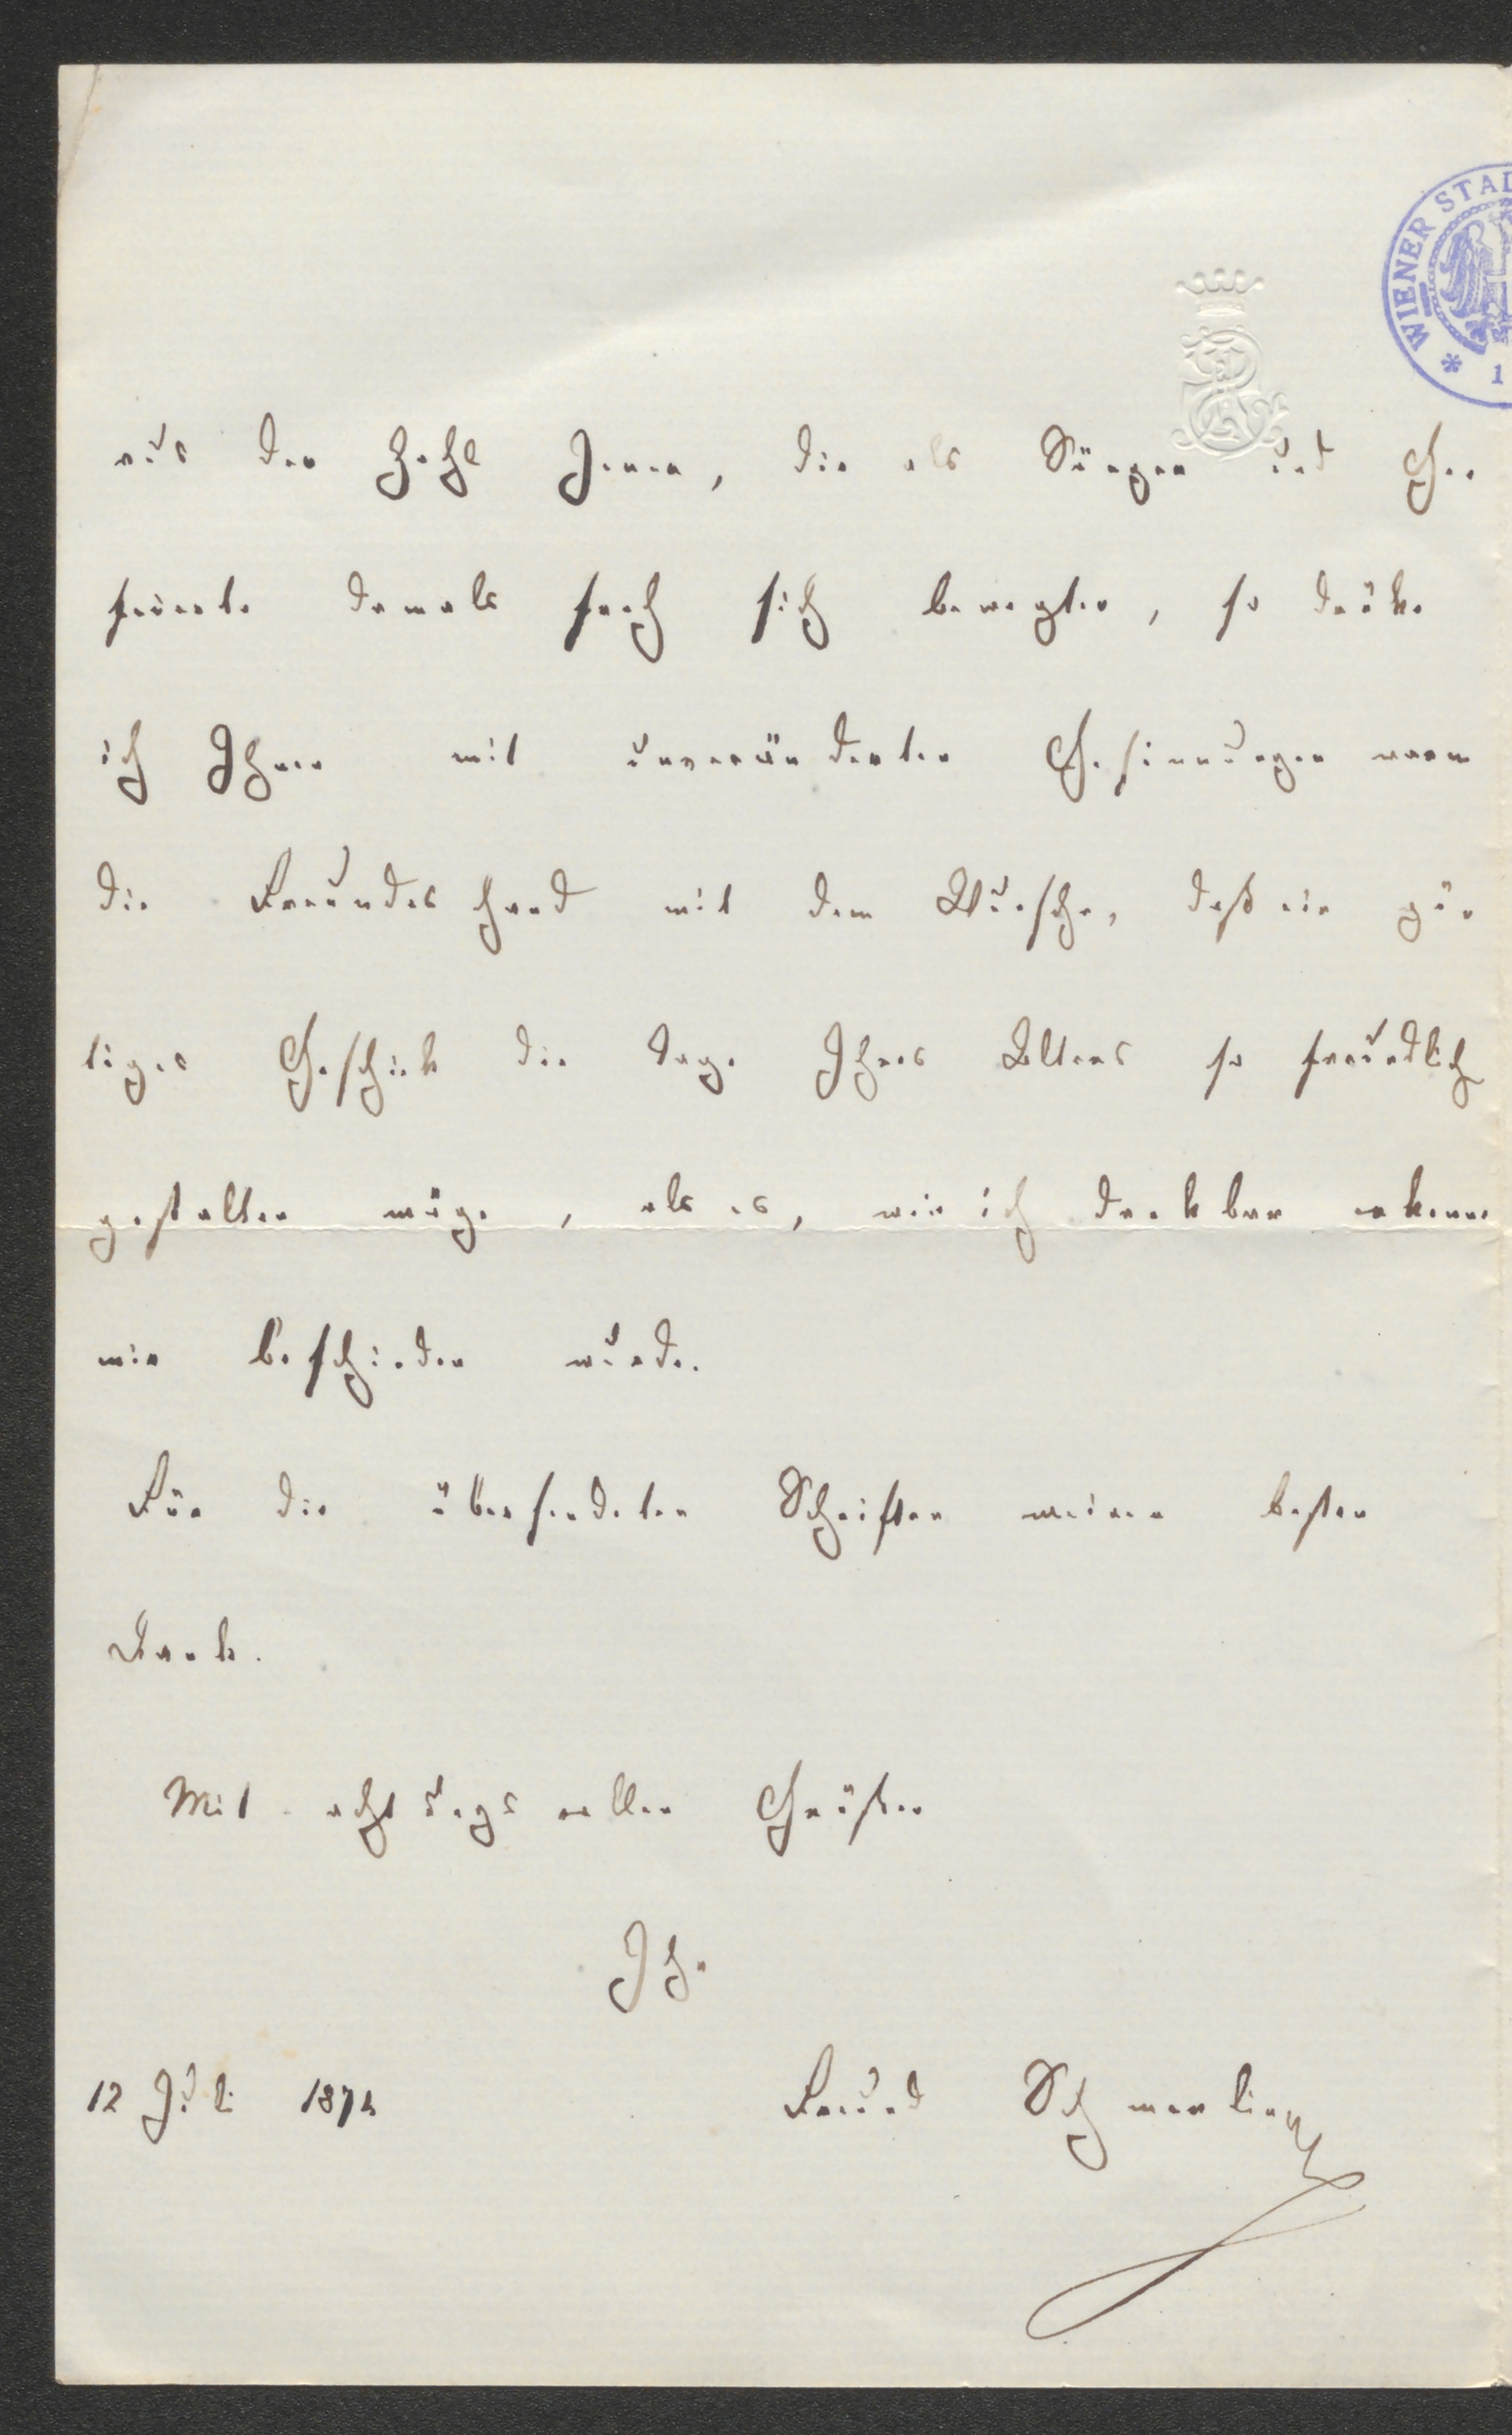 WIENER STAD
aus der Zahl Jener, die als Sänger und Ge
feierte damals frech sich bewegten, so drüke
ich Ihnen mit unveränderten Gesinnungen warm
die Freundeshand mit dem Wunsche, daß ein gü
tiges Geschik die Tage Ihres Alters so freundlich
gestalten möge, als es, wie ich dankbar erkenne
mir beschieden wurde.
Für die übersendeten Schriften meinen besten
Dank.
Mit achtungsvollen Grüßen
Ihr
12 Juli 1874 Freund Schmerling